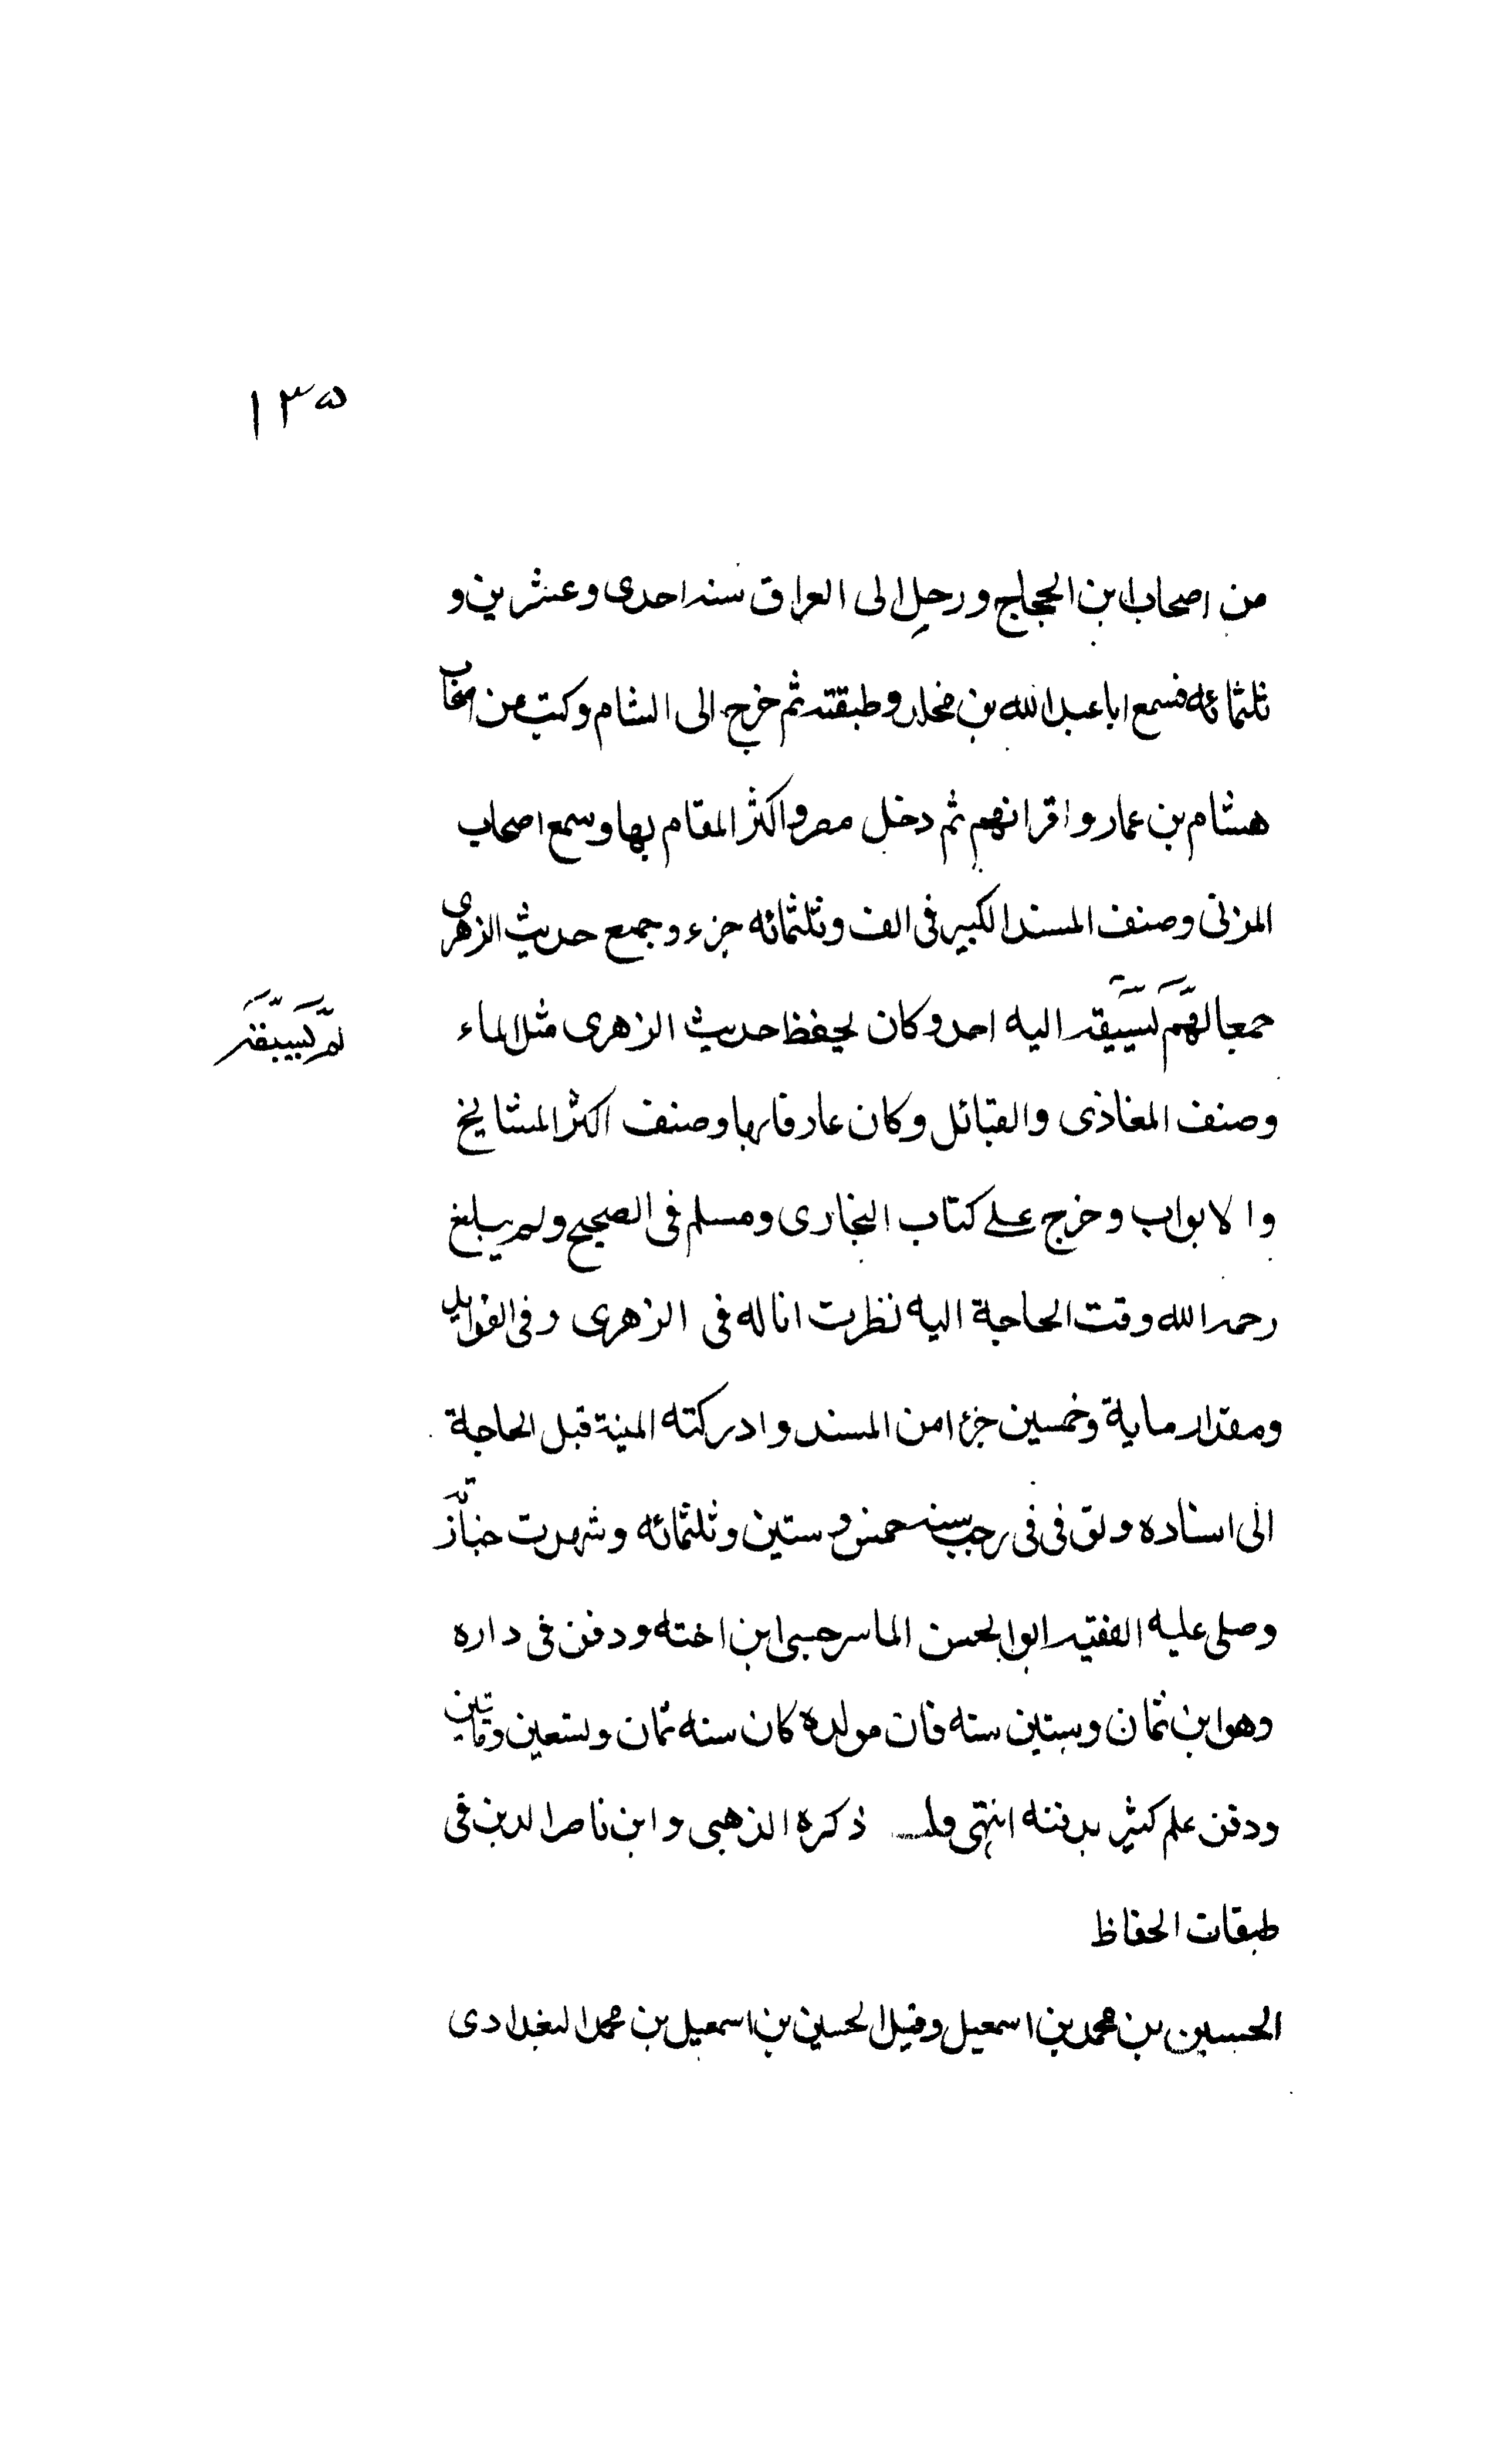 ١٣٥
من اصحاب ابن الحجاج ورحل الى العراق سنه احدى وعشرين و
ثلثمائه فسمع ابا عبد الله بن مخلد وطبقته ثم خرج الى الشام وكتب عن اصحاب
هشام بن عمار واقرانهم ثم دخل مصر واكثر المقام بها وسمع اصحاب
المزنى وصنف المسند الكبير فى الف وثلثمائه جزء وجمع حديث الزهرى
جمعا لم يسبقه اليه احد وكان يحفظ حديث الزهرى مثل الماء
لم يسبقه
وصنف المغاذى والقبائل وكان عارفا بها وصنف اكثر المشايخ
والابواب وخرج على كتاب البخارى ومسلم فى الصحيح ولم يبلغ
رحمه الله وقت الحاجة اليه نظرت انا له فى الزهرى وفى الفوايد
ومقدار ماية وخمسين جزءا من المسند وادركته المنية قبل الحاجة
الى اسناده وتوفى فى رجب سنه خمس وستين وثلثمائه وشهدت جنازته
وصلى عليه الفقيه ابو الحسن الماسرجسى ابن اخته ودفن فى داره
وهو ابن ثمان وستين سنه فان مولده كان سنه ثمان وتسعين ومايتين
ودفن علم كثير بدفنه انتهى قلت ذكره الذهبى وابن ناصر الدين فى
طبقات الحفاظ
الحسين بن محمد بن اسمعيل وقيل الحسين بن اسمعيل بن محمد البغدادى